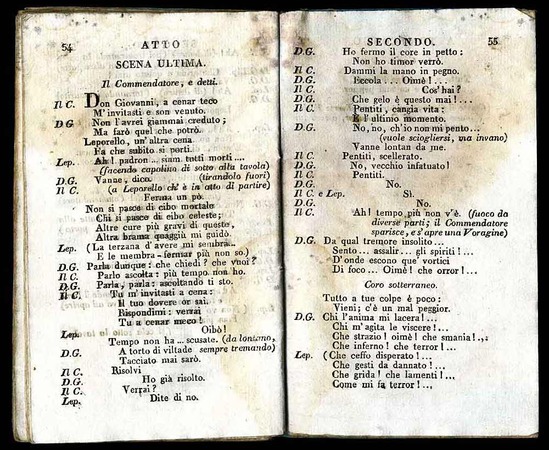 54
ATTO
SCENA ULTIMA.
Il Commendatore, e detti.
Il C. Don Giovanni, a cenar teco
M'invitasti e son venuto.
D.G Non l'avrei giammai creduto;
Ma farò quel che potrò.
Leporello, un'altra cena
Fa che subito si porti.
Lep. Ah! padron... siam tutti morti....
(facendo capolino di sotto alla tavola)
D.G. Vanne, dico. (tirandolo fuori)
Il C. (a Leporello ch'è in atto di partire)
Ferma un pò.
Non si pasce di cibo mortale
Chi si pasce di cibo celeste;
Altre cure più gravi di queste,
Altra brama quaggiù mi guidò.
Lep. (La terzana d'avere mi sembra...
E le membra - fermar più non so.)
D.G. Parla dunque: che chiedi? che vuoi?
Il C. Parlo ascolta: più tempo non ho.
D.G. Parla, parla: ascoltando ti sto.
Il C. Tu m'invitasti a cena:
Il tuo dovere or sai.
Rispondimi: verrai
Tu a cenar meco!
Lep. Oibò!
Tempo non ha... scusate. (da lontano,
D.G. A torto di viltade sempre tremando)
Tacciato mai sarò.
Il C. Risolvi
D.G. Ho già risolto.
Il C. Verrai?
Lep. Dite di no.
SECONDO.
55
D.G. Ho fermo il core in petto:
Non ho timor verrò.
Il C. Dammi la mano in pegno.
D.G. Eccola... Oimè!...
Il C. Cos'hai?
D.G. Che gelo è questo mai!...
Il C. Pentiti, cangia vita:
E l'ultimo momento.
D.G. No, no, ch'io non mi pento...
(vuole sciogliersi, ma invano)
Vanne lontan da me.
Il C. Pentiti, scellerato.
D.G. No, vecchio infatuato!
Il C. Pentiti.
D.G. No.
Il C. e Lep. Sì.
D.G. No.
Il C. Ah! tempo più non v'è. (fuoco da
diverse parti; il Commendatore
sparisce, e s'apre una Voragine)
D.G. Da qual tremore insolito...
Sento... assalir... gli spiriti!...
D'onde escono que' vortici
Di foco... Oimè! che orror!...
Coro sotterraneo.
Tutto a tue colpe è poco:
Vieni; c'è un mal peggior.
D.G. Chi l'anima mi lacera!...
Chi m'agita le viscere!...
Che strazio! oimè! che smania!...
Che inferno! che terror!...
Lep. (Che ceffo disperato!...
Che gesti da dannato!...
Che grida! che lamenti!...
Come mi fa terror!...